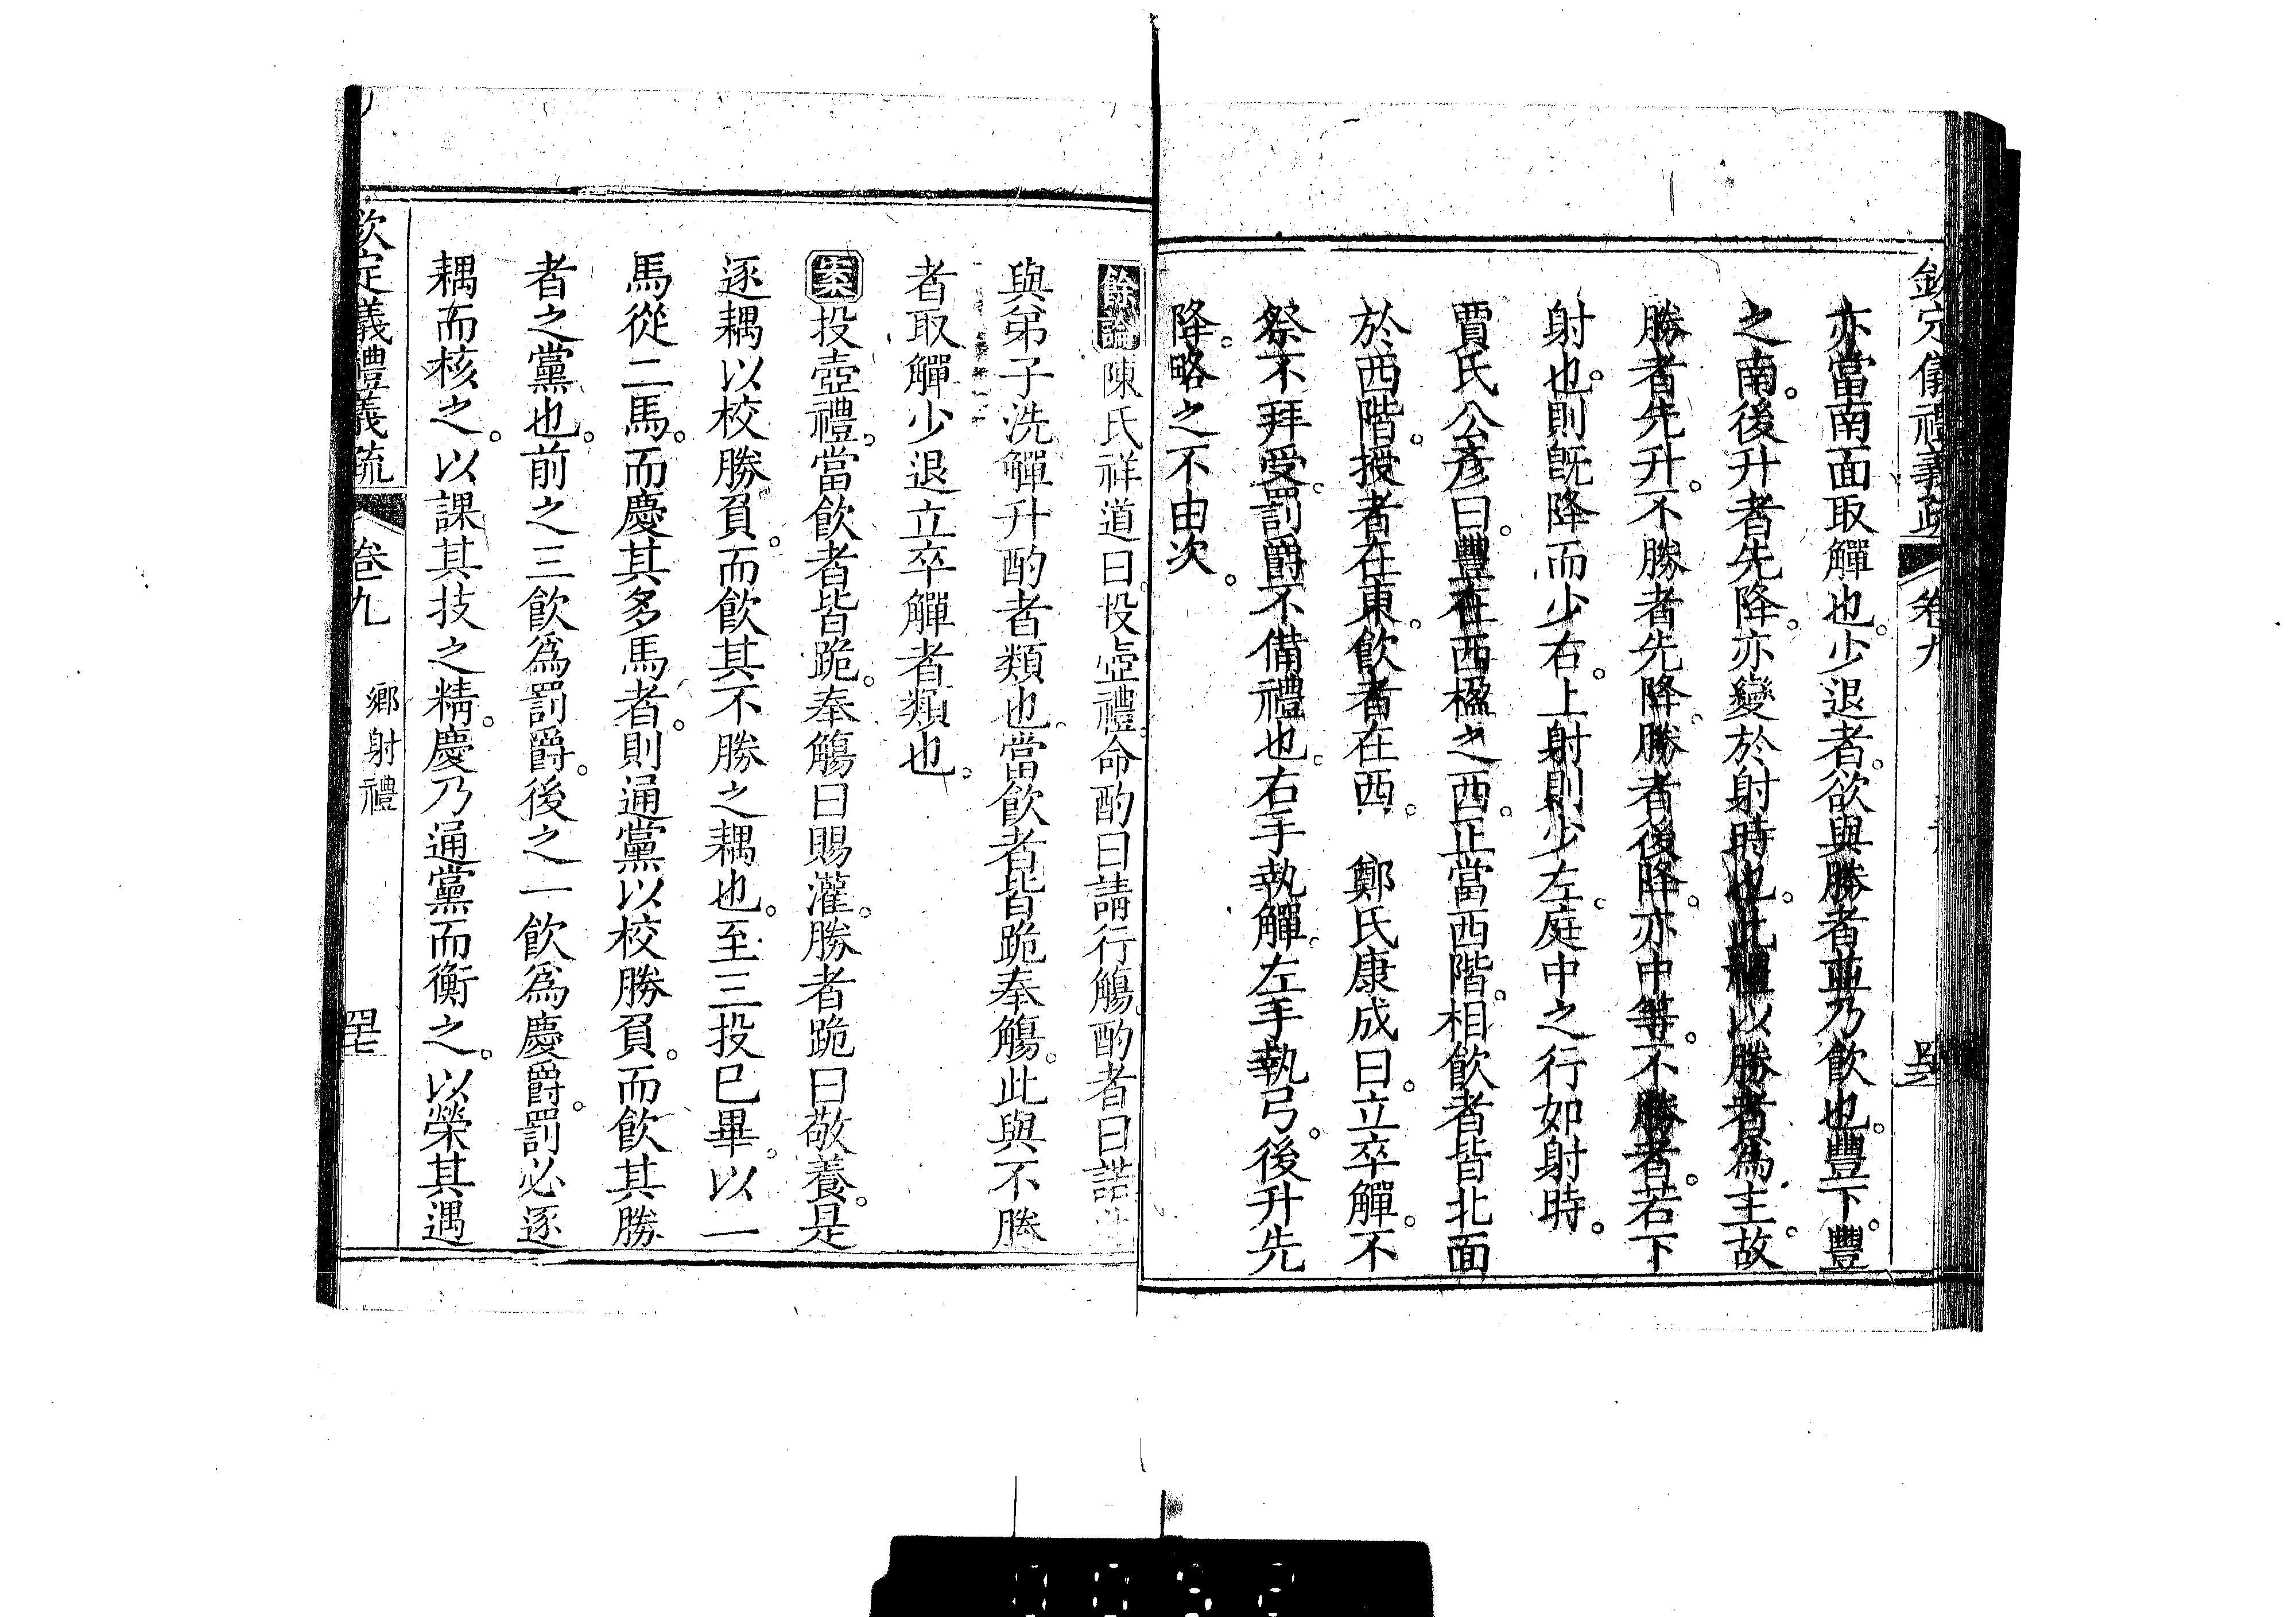 欽定儀禮義疏 卷九
亦當南面取觶也。少退者。欲與勝者並乃飲也。豐下。豐
之南。後升者先降。亦變於射時也。此禮以勝者爲主。故
勝者先升。不勝者先降。勝者後降。亦中等。不勝者。若下
射也。則既降而少右。上射則少左。庭中之行如射時。
賈氏公彥曰。豐在西楹之西。正當西階。相飲者皆北面
於西階。授者在東。飲者在西。 鄭氏康成曰。立卒觶。不
祭不拜受。罰爵不備禮也。右手執觶。左手執弓。後升先
降。略之不由次。
餘論陳氏祥道曰。投壺禮。命酌曰請行觴。酌者曰諾
與弟子洗觶升酌者類也。當飲者皆跪奉觴。此與不勝
者取觶少退立卒觶者類也。
案投壺禮。當飲者皆跪。奉觴曰賜灌。勝者跪曰敬養。是
逐耦以校勝負。而飲其不勝之耦也。至三投已畢。以一
馬從二馬。而慶其多馬者。則通黨以校勝負。而飲其勝
者之黨也。前之三飲爲罰爵。後之一飲爲慶爵。罰必逐
耦而核之。以課其技之精。慶乃通黨而衡之。以榮其遇
欽定義禮義疏 卷九 鄉射禮 四七